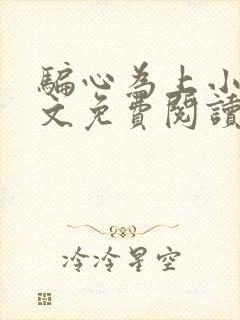 騙心為上小
文免費閱讀
冷冷星空